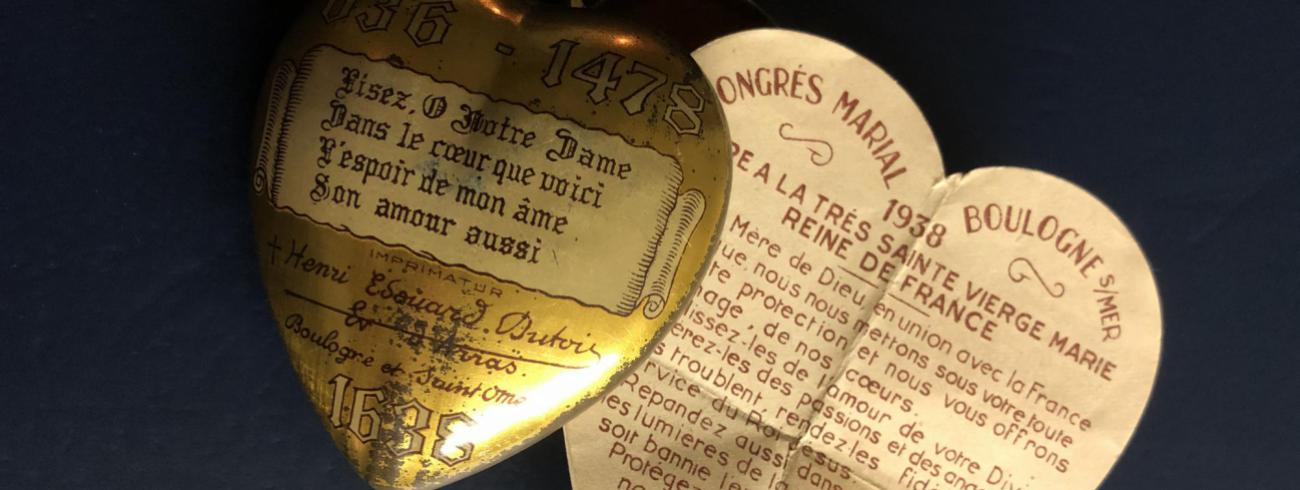 036 - 1478
Lisez, O Notre Dame
Dans le cœur que voici
L'espoir de mon âme
Son amour aussi
IMPRIMATUR
+ Henri Edouard. Dutoit
Ev. d'Arras.
Boulogne et Saint Omer
1638
ONGRÉS MARIAL 1938 BOULOGNE S/MER
RE A LA TRÉS SAINTE VIERGE MARIE
REINE DE FRANCE
Mère de Dieu, en union avec la France
que, nous nous mettons sous votre toute
re protection et nous vous offrons
mage, de nos cœurs.
lissez-les de l'amour de votre Divi
erez-les des passions et des ang
s troublent, rendez-les fidè
rvice du Roi Jésus.
Repandez aussi dans
les lumières de la
soit bannie le
Protégez
no